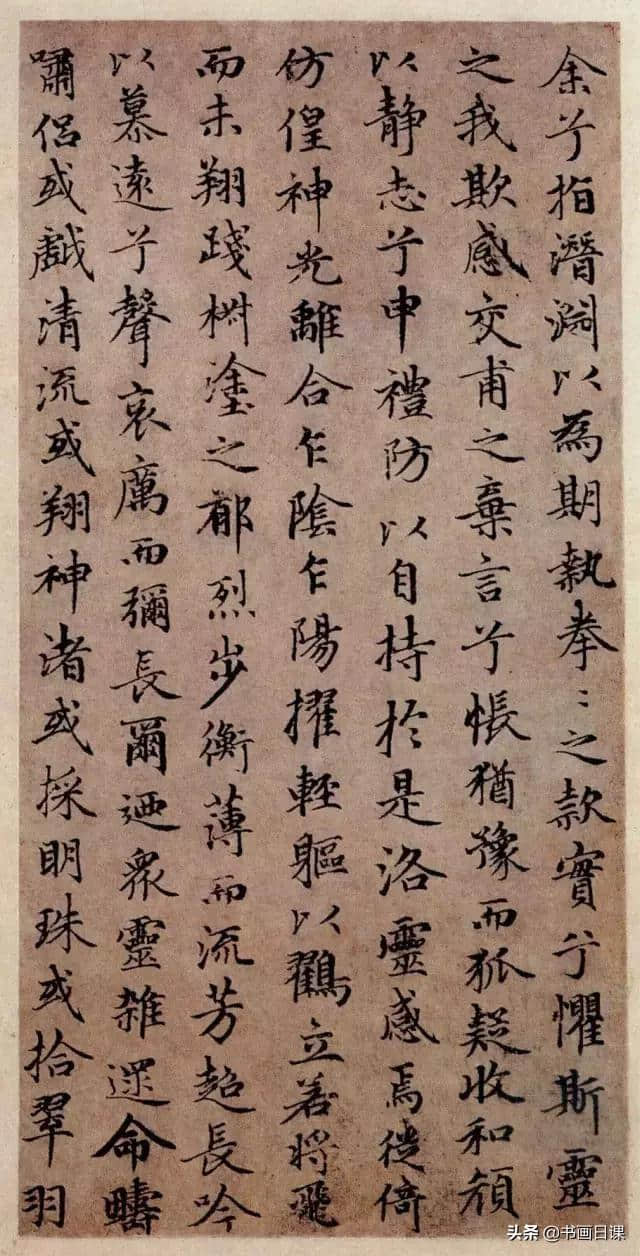 余兮指潛淵以為期執拳〻之款實兮懼斯靈
之我欺感交甫之棄言兮悵猶豫而狐疑收和顏
以静志兮申禮防以自持於是洛靈感焉徙倚
仿偟神光離合乍陰乍陽擢輕軀以鸖立若將飛
而未翔踐椒塗之郁烈步衡薄而流芳超長吟
以慕遠兮聲哀厲而彌長爾迺衆靈雜遝命疇
嘯侶或戲清流或翔神渚或採明珠或拾翠羽
头条 @书画日课